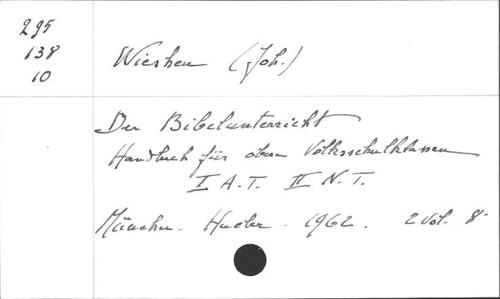 295
138
10
Wieshen (Joh.)
Der Bibelunterricht
Handbuch für obern Volksschulklassen
I A.T. II N.T.
München. Hueber. 1962. 2 vol. 8°